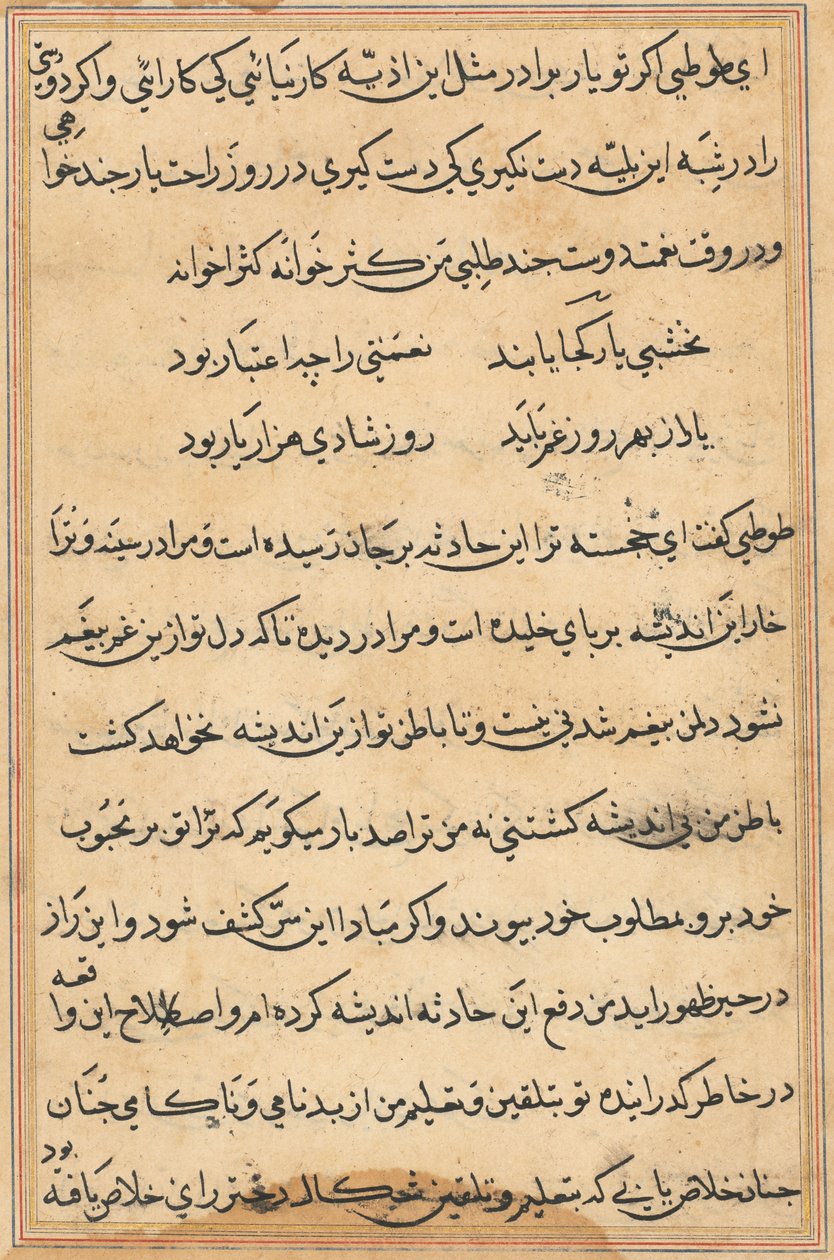 ای طوطی اکر تو یار برادر مثل این اذیّه کار نیائی کی کار ائی واکر دوستی
را در شبه این بلیّه دست نکیری کی دست کیری در روز راحت یار جند خواهی
و در وقت نعمت دوست جند طلبی من کثر خوانه کثر اخوانه
نخشبی یار کجا یابند نعمتی را چه اعتبار بود
یار از بهر روز غم باید روز شادی هزار یار بود
طوطی کفت ای خجسته ترا این حادثه بر جان رسیده است و مرا در سینه و ترا
خار این اندیشه بر پای خلیده است و مرا در دیده تا که دل تو ازین غم بیغم
نشود دل من بیغم شدنی نیست و تا باطن تو ازین اندیشه نخواهد کشت
باطن من بی اندیشه کشتنی نه من ترا صد بار میکویم که ترا تو بر محبوب
خود برو بمطلوب خود بیوند واکر مبادا این سرّ کشف شود و این راز
در حیز ظهور اید من دفع این حادثه اندیشه کرده ام و اصطلاح این واقعه
در خاطر کدرانیده تو بتلقین و تعلیم من از بدنامی و ناکامی جنان
جنان خلاص یابی که بتعلیم و تلقین شکال دختر رای خلاص یافه بود